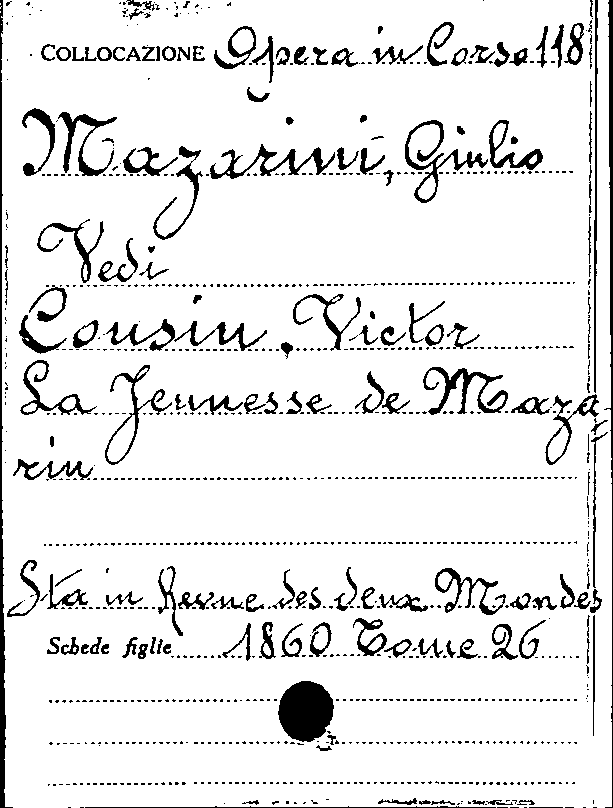 COLLOCAZIONE Opera in Corso 118
Mazarini, Giulio
Vedi
Cousin, Victor
La Jeunesse de Maza-
rin
Sta in Revue des deux Mondes
Schede figlie 1860 Tome 26